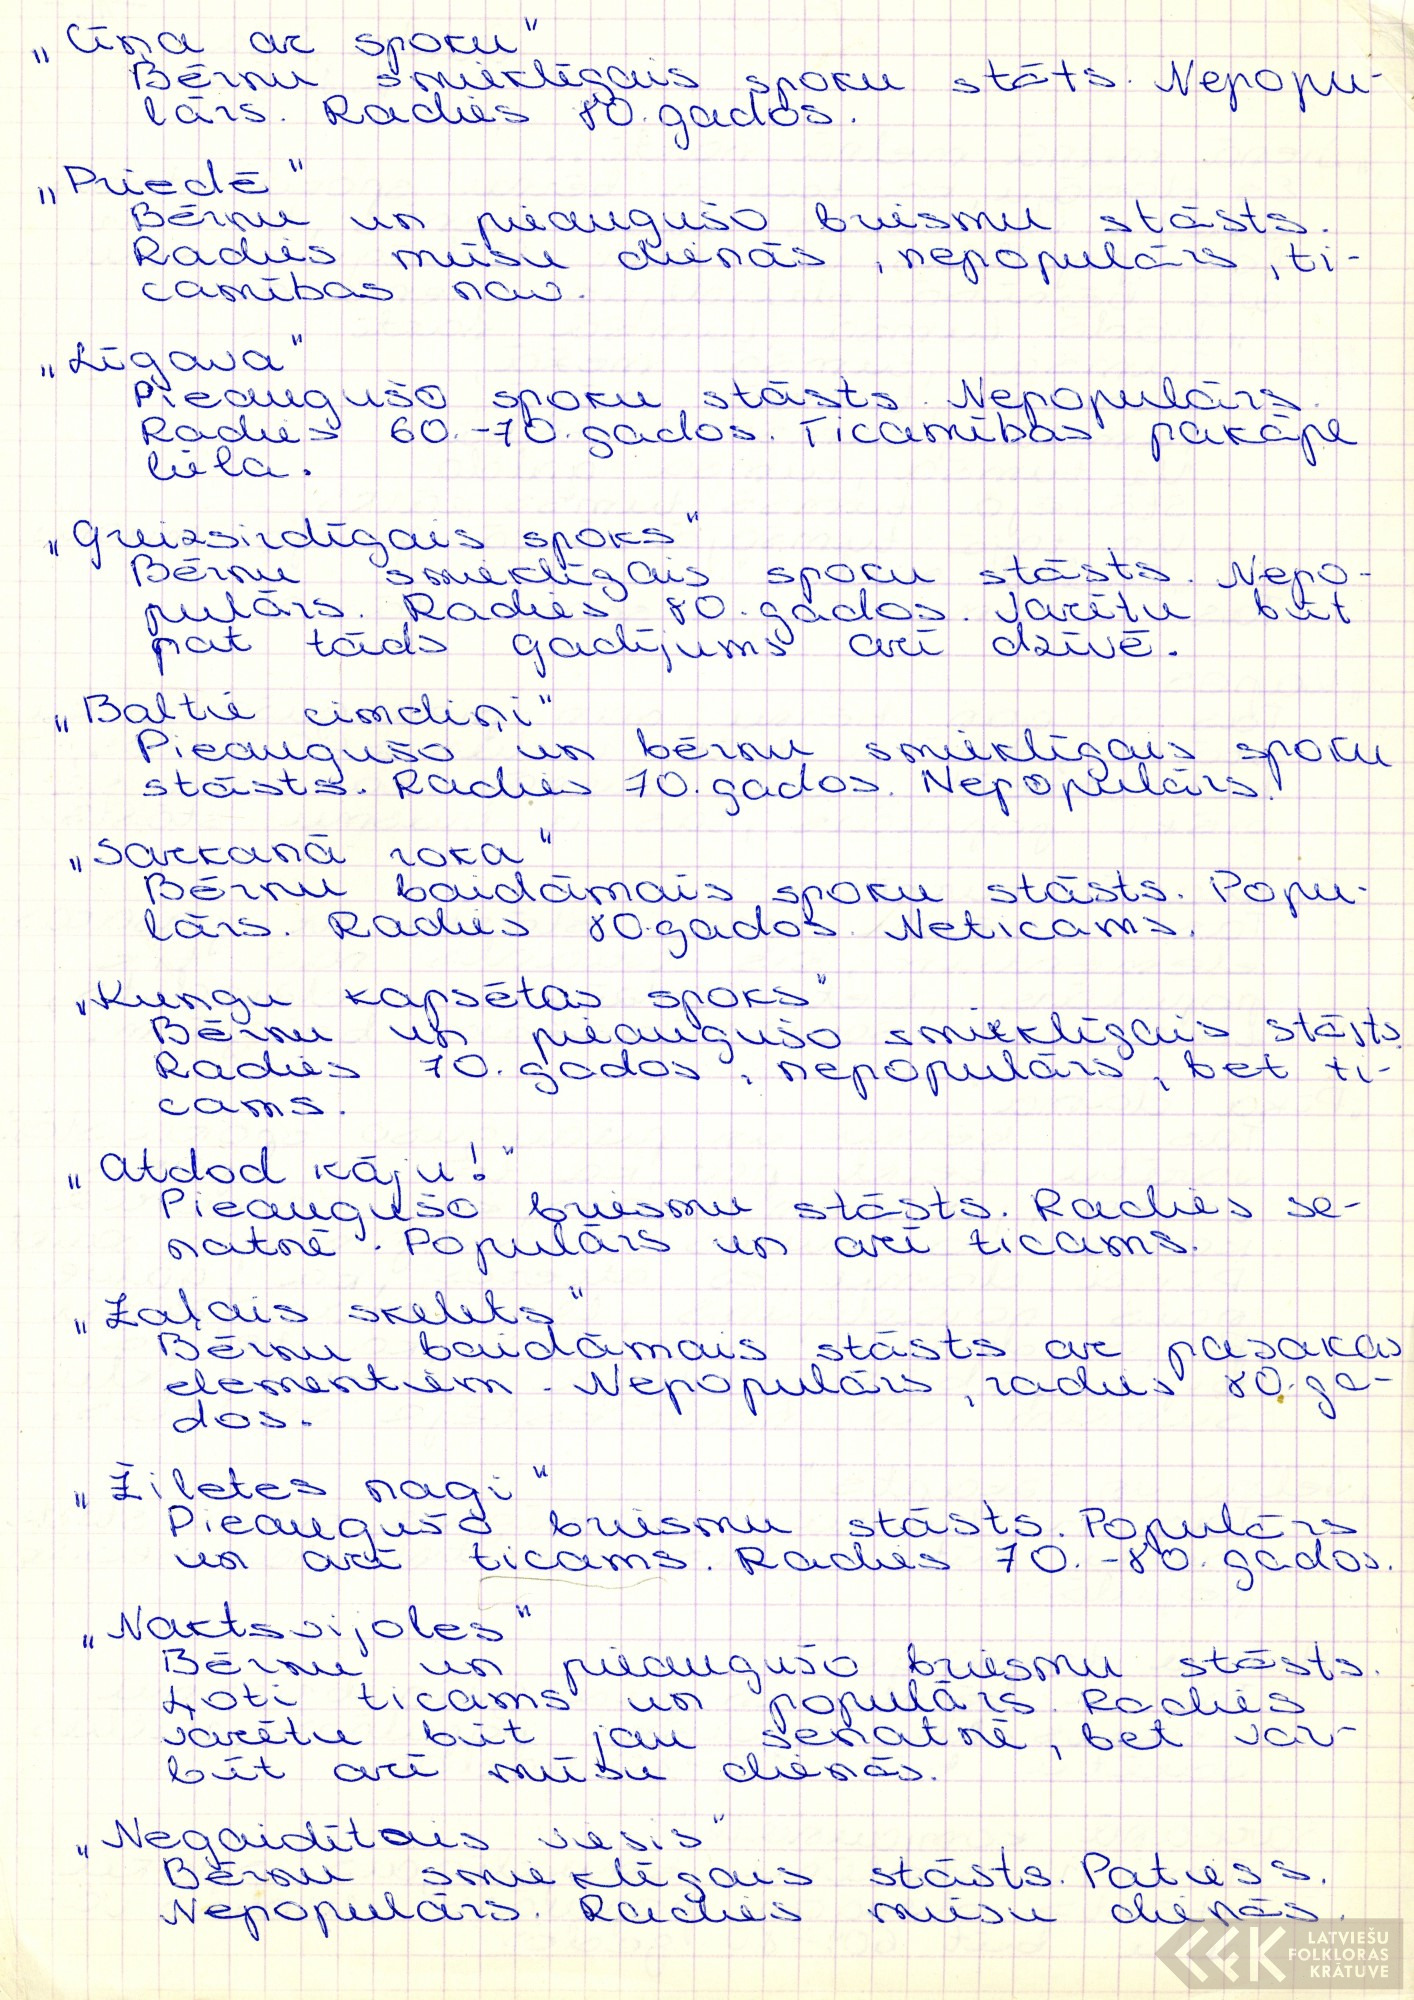 „Cīņa ar spoku"
Bērnu smieklīgais spoku stāts. Nepopu-
lārs. Radies 80. gados.
„Priedē"
Bērnu un pieaugušo briesmu stāsts.
Radies mūsu dienās, nepopulārs, ti-
camības nav.
„Līgava"
Pieaugušo spoku stāsts. Nepopulārs.
Radies 60.-70. gados. Ticamības pakāpe
liela.
„Greizsirdīgais spoks"
Bērnu smieklīgais spoku stāsts. Nepo-
pulārs. Radies 80. gados. Varētu būt
pat tāds gadījums arī dzīvē.
„Baltie cimdiņi"
Pieaugušo un bērnu smieklīgais spoku
stāsts. Radies 70. gados. Nepopulārs.
„Sarkanā roka"
Bērnu baidāmais spoku stāsts. Popu-
lārs. Radies 80. gados. Neticams.
„Kungu kapsētas spoks"
Bērnu un pieaugušo smieklīgais stāsts.
Radies 70. gados, nepopulārs, bet ti-
cams.
„Atdod kāju!"
Pieaugušo briesmu stāsts. Radies se-
natnē. Populārs un arī ticams.
„Zaļais skelets"
Bērnu baidāmais stāsts ar pasakas
elementiem. Nepopulārs, radies 80. ga-
dos.
„Žiletes nagi"
Pieaugušo briesmu stāsts. Populārs
un arī ticams. Radies 70.-80. gados.
„Naktsvijoles"
Bērnu un pieaugušo briesmu stāsts.
Ļoti ticams un populārs. Radies
varētu būt jau senatnē, bet var-
būt arī mūsu dienās.
„Negaidītais viesis"
Bērnu smieklīgais stāsts. Patiess.
Nepopulārs. Radies mūsu dienās.
LATVIEŠU
FOLKLORAS
KRĀTUVE